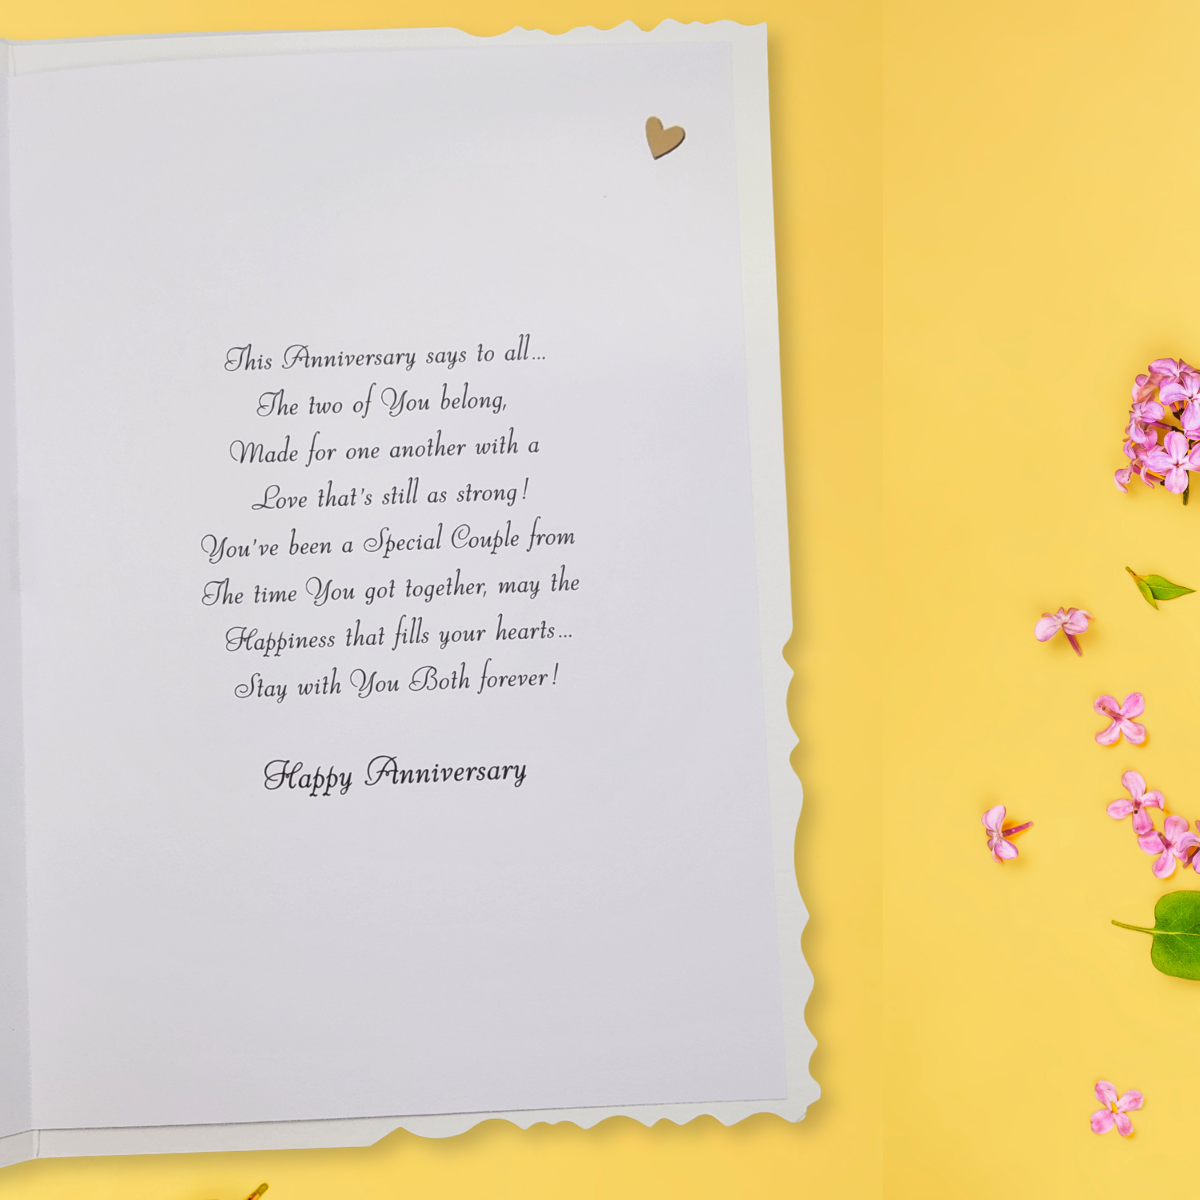 This Anniversary says to all...
The two of You belong,
Made for one another with a
Love that's still as strong!
You've been a Special Couple from
The time You got together, may the
Happiness that fills your hearts...
Stay with You Both forever!
Happy Anniversary